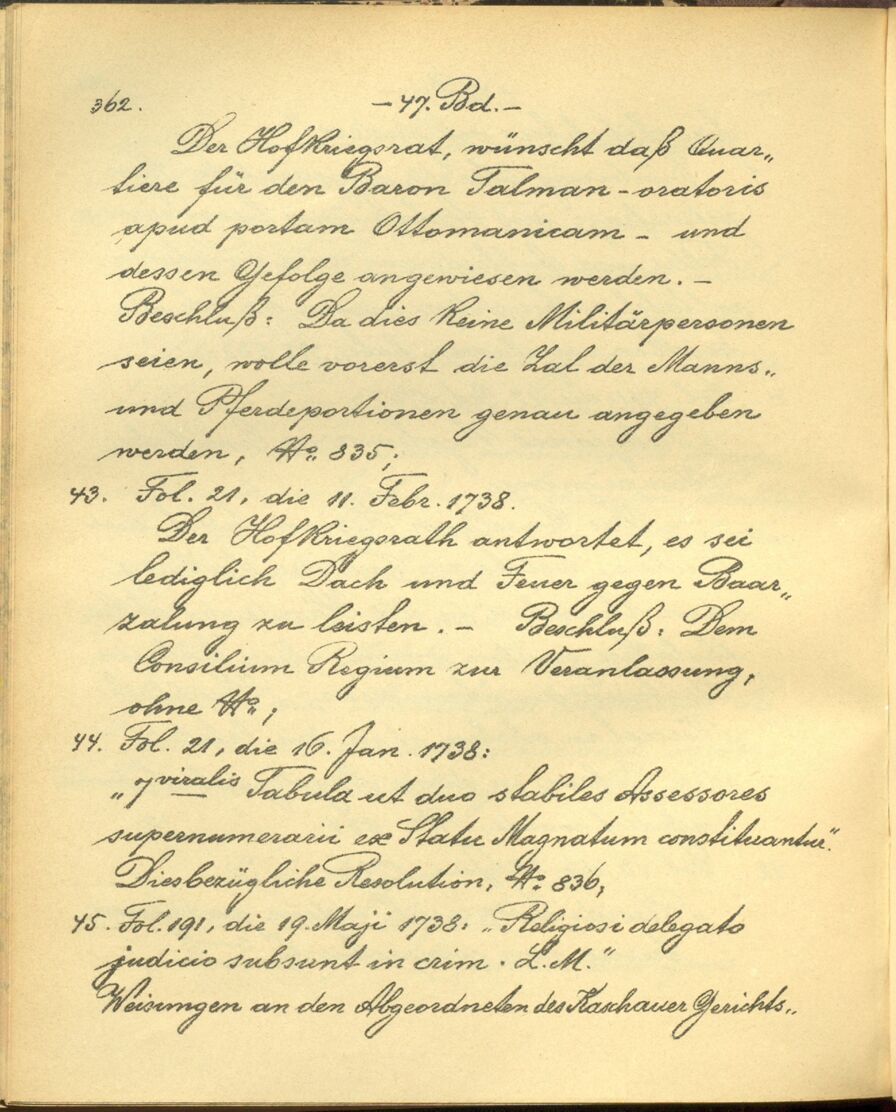 362. — 47. Bd. —
Der Hofkriegsrat, wünscht daß Quar„
tiere für den Baron Talman - oratoris
apud portam Ottomanicam - und
dessen Gefolge angewiesen werden. —
Beschluß: Da dies keine Militärpersonen
seien, wolle vorerst die Zal der Manns„
und Pferdeportionen genau angegeben
werden, No. 835;
43. Fol. 21, die 11. Febr. 1738.
Der Hofkriegsrath antwortet, es sei
lediglich Dach und Feuer gegen Baar„
zalung zu leisten. — Beschluß: Dem
Consilium Regium zur Veranlassung,
ohne No.;
44. Fol. 21, die 16. Jan. 1738:
„7viralis Tabula ut duo stabiles Assessores
supernumerarii ex Statu Magnatum constituantur".
Diesbezügliche Resolution, No. 836;
45. Fol. 191, die 19. Maji 1738: „Religiosi delegato
judicio subsunt in crim. L. M."
Weisungen an den Abgeordneten des Kaschauer Gerichts„